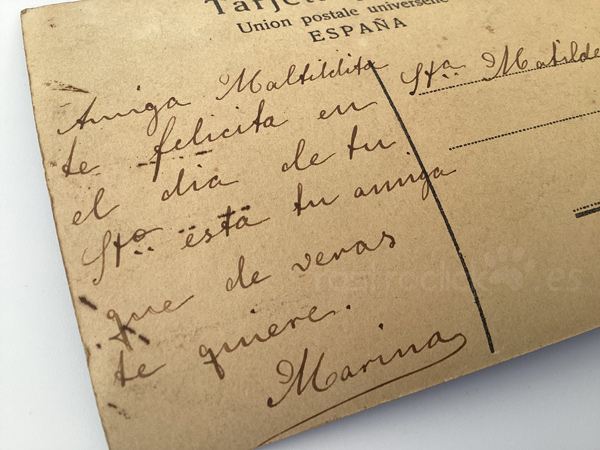 Tarjeta
Union postale universelle
ESPAÑA
Amiga Maltildita
te felicita en
el dia de tu
Sto. esta tu amiga
que de veras
te quiere.
Marina
Sta. Matilde
todocoleccion.es